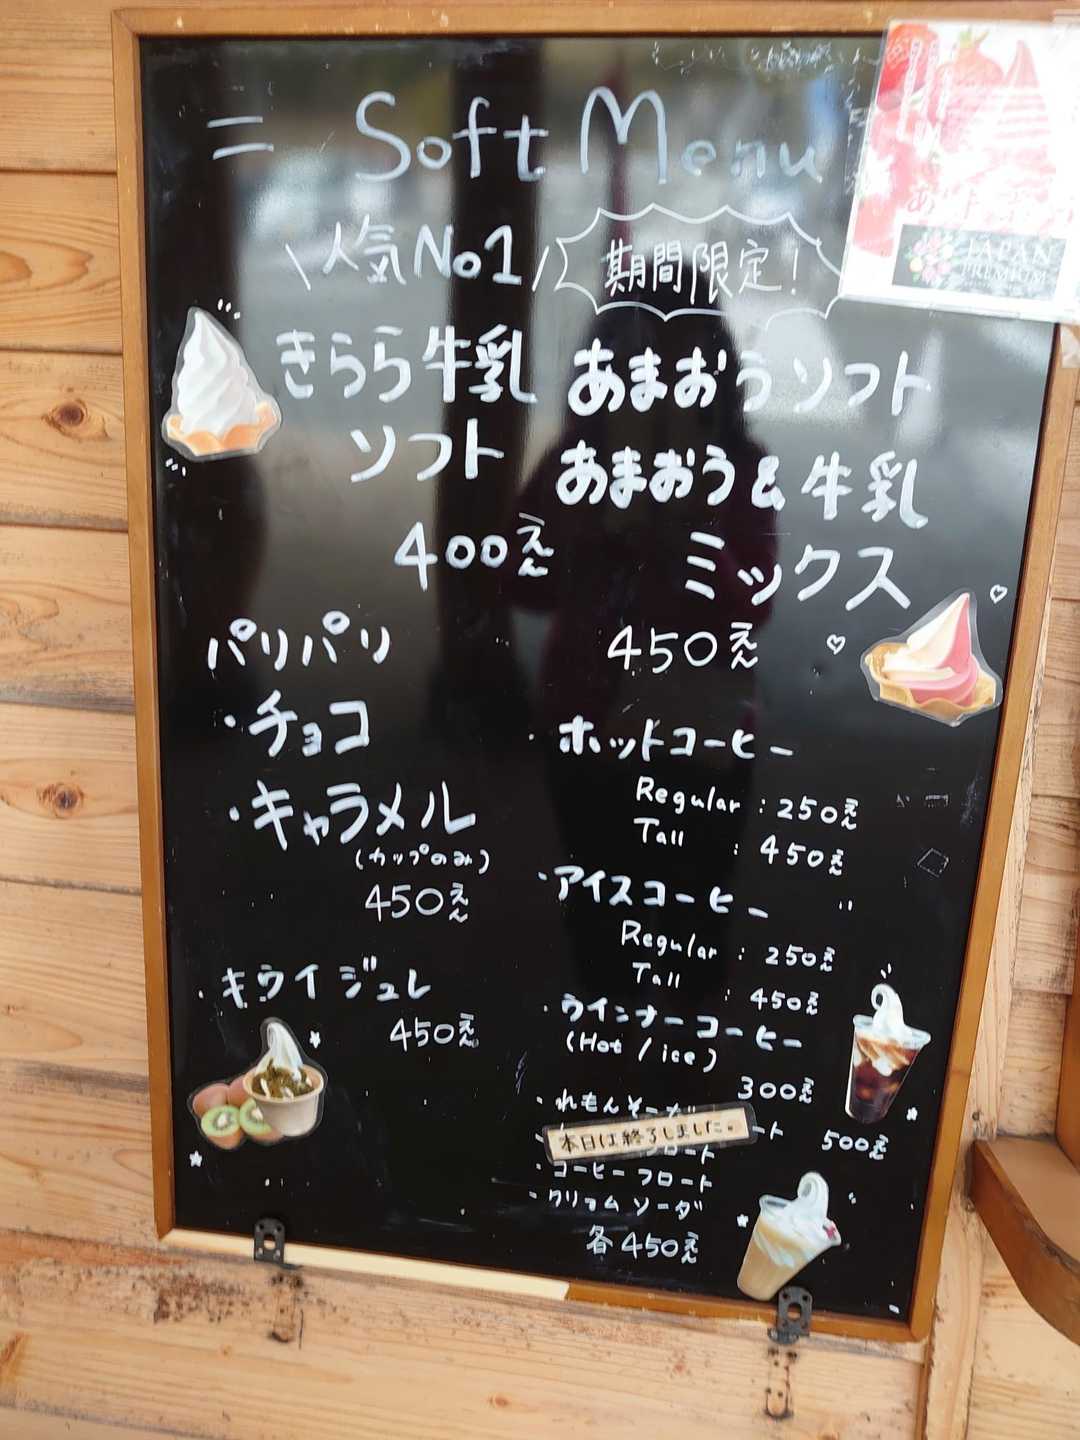 = Soft Menu
人気No1
きらら牛乳
ソフト
400えん
期間限定!
あまおうソフト
あまおう&牛乳
ミックス
450えん
パリパリ
・チョコ
・キャラメル
(カップのみ)
450えん
・キウイジュレ
450えん
・ホットコーヒー
Regular : 250えん
Tall : 450えん
・アイスコーヒー
Regular : 250えん
Tall : 450えん
・ウインナーコーヒー
(Hot / ice)
300えん
・れもんそーだ
本日は終了しました。
ート 500えん
フロート
・コーヒーフロート
・クリームソーダ
各450えん
JAPAN
PREMIUM